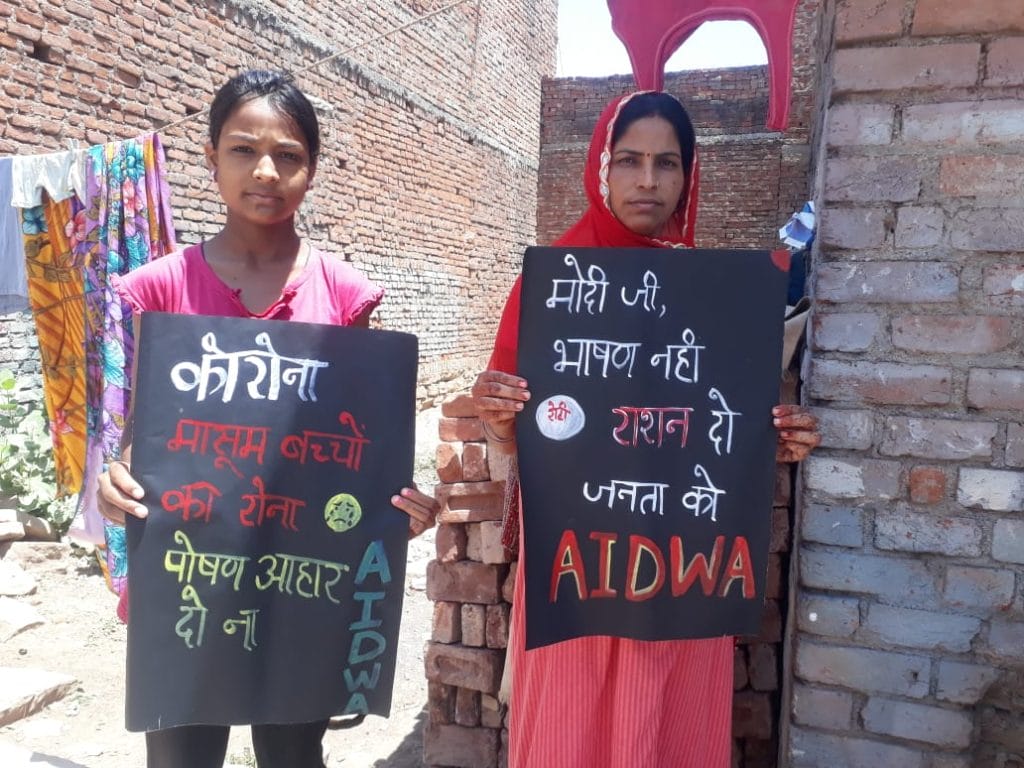 कोरोना
मासूम बच्चों
का रोना
पोषण आहार
दो ना
AIDWA
मोदी जी,
भाषण नहीं
रोटी राशन दो
जनता को
AIDWA